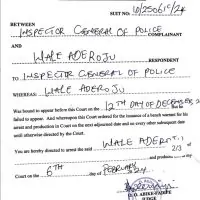 SUIT NO: 
BETWEEN
INSPECTOR GENERAL OF POLICE COMPLAINANT
AND
WALE ADEROJU RESPONDENT
TO INSPECTOR GENERAL OF POLICE
WHEREAS: WALE ADEROJU
Was bound to appear before this Court on the 12TH DAY OF DECEMBER
failed to appear. And whereupon this Court ordered for the issuance of a bench warrant for his
arrest and production in Court on the next adjourned date and on every other subsequent date
until otherwise directed by the Court.
You are hereby directed to arrest the said WALE ADEROJU
and produce 2/3 of
Court on the 6TH day of
JUDGE